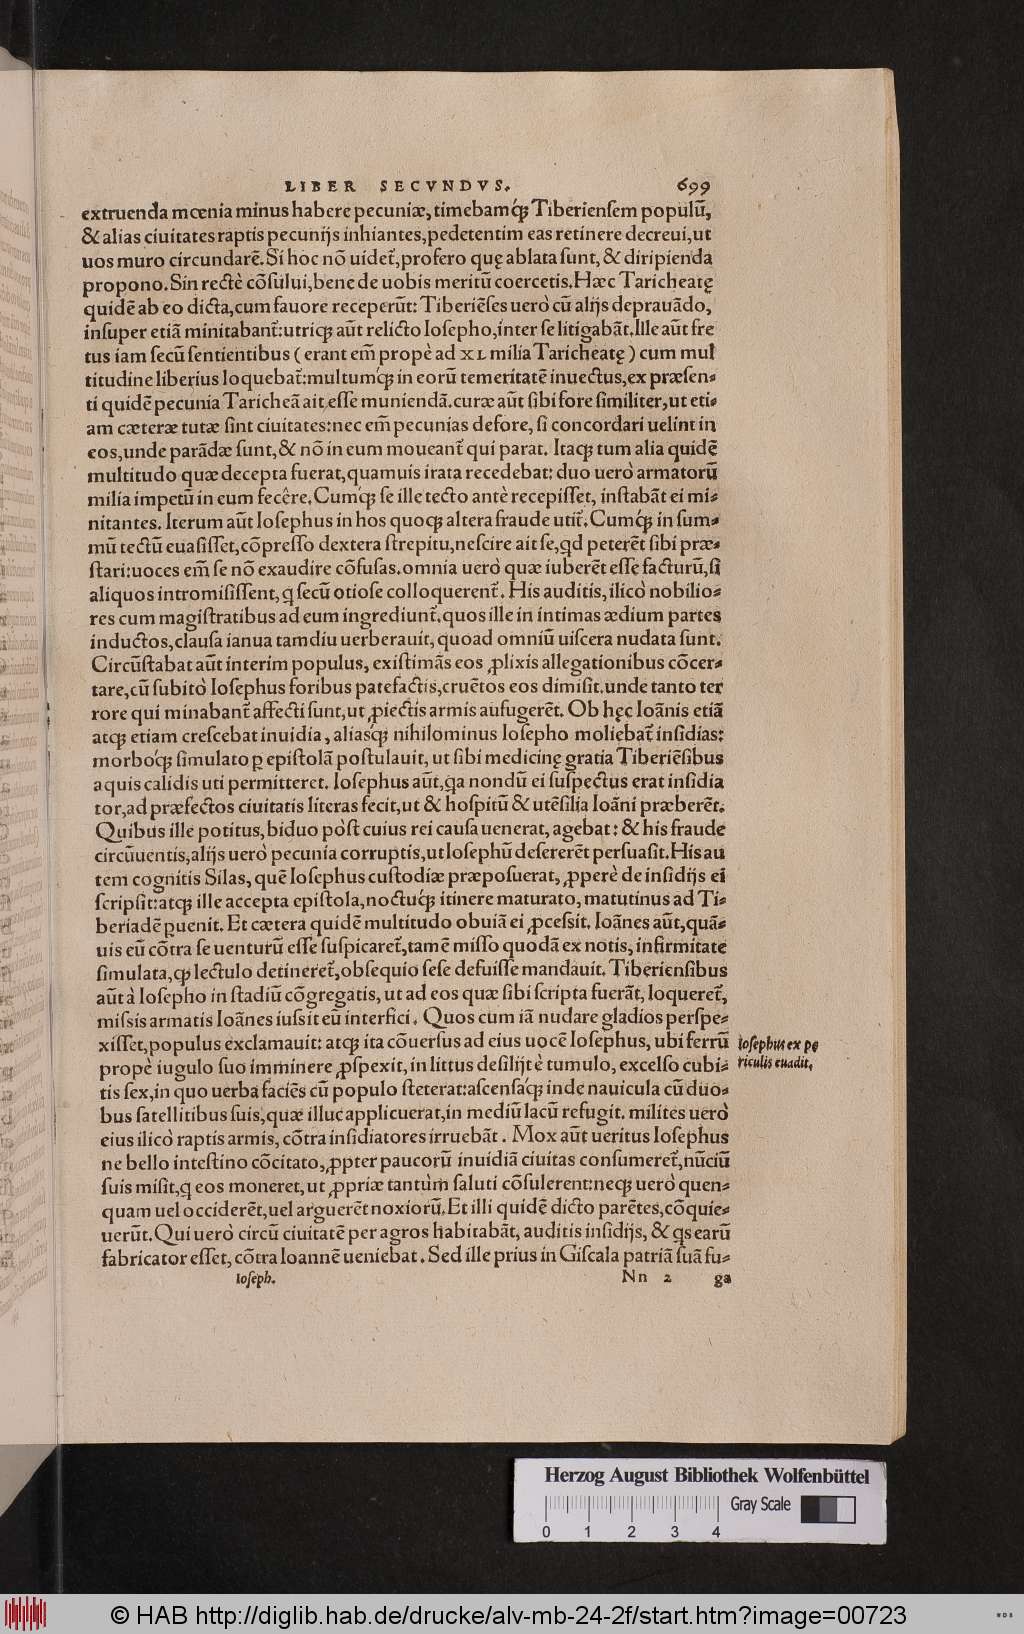 LIBER SECVNDVS. 699
extruenda mœnia minus habere pecuniæ, timebamq́ꝫ Tiberiensem populũ,
& alias ciuitates raptis pecunijs inhiantes, pedetentim eas retinere decreui, ut
uos muro circundarẽ. Si hoc nõ uidet̃, profero quę ablata sunt, & diripienda
propono. Sin rectè cõsului, bene de uobis meritũ coercetis. Hæc Taricheatę
quidẽ ab eo dicta, cum fauore receperũt: Tiberiẽses uerò cũ alijs deprauãdo,
insuper etiã minitabant̃: utriqꝫ aũt relicto Iosepho, inter se litigabãt. Ille aũt fre
tus iam secũ sentientibus ( erant em̃ propè ad XL milia Taricheatę ) cum mul
titudine liberius loquebat̃: multumq́ꝫ in eorũ temeritatẽ inuectus, ex præsen-
ti quidẽ pecunia Taricheã ait esse muniendã. curæ aũt sibi fore similiter, ut eti-
am cæteræ tutæ sint ciuitates: nec em̃ pecunias defore, si concordari uelint in
eos, unde parãdæ sunt, & nõ in eum moueant̃ qui parat. Itaqꝫ tum alia quidẽ
multitudo quæ decepta fuerat, quamuis irata recedebat: duo uerò armatorũ
milia impetũ in eum fecêre. Cumq́ꝫ se ille tecto antè recepisset, instabãt ei mi-
nitantes. Iterum aũt Iosephus in hos quoqꝫ altera fraude utit̃. Cumq́ꝫ in sum-
mũ tectũ euasisset, cõpresso dextera strepitu, nescire ait se, qd peterẽt sibi præ-
stari: uoces em̃ se nõ exaudire cõfusas. omnia uerò quæ iuberẽt esse facturũ, si
aliquos intromisissent, q secũ otiose colloquerent̃. His auditis, ilicò nobilio-
res cum magistratibus ad eum ingrediunt̃. quos ille in intimas ædium partes
inductos, clausa ianua tamdiu uerberauit, quoad omniũ uiscera nudata sunt.
Circũstabat aũt interim populus, existimãs eos ꝓlixis allegationibus cõcer-
tare, cũ subitò Iosephus foribus patefactis, cruẽtos eos dimisit. unde tanto ter
rore qui minabant̃ affecti sunt, ut ꝓiectis armis aufugerẽt. Ob hęc Ioãnis etiã
atqꝫ etiam crescebat inuidia, aliasq́ꝫ nihilominus Iosepho moliebat̃ insidias:
morboq́ꝫ simulato ꝑ epistolã postulauit, ut sibi medicinę gratia Tiberiẽsibus
aquis calidis uti permitteret. Iosephus aũt, qa nondũ ei suspectus erat insidia
tor, ad præfectos ciuitatis literas fecit, ut & hospitũ & utẽsilia Ioãni præberẽt.
Quibus ille potitus, biduo pòst cuius rei causa uenerat, agebat: & his fraude
circũuentis, alijs uerò pecunia corruptis, ut Iosephũ desererẽt persuasit. His au
tem cognitis Silas, quẽ Iosephus custodiæ præposuerat, ꝓperè de insidijs ei
scripsit: atqꝫ ille accepta epistola, noctuq́ꝫ itinere maturato, matutinus ad Ti-
beriadẽ ꝑuenit. Et cætera quidẽ multitudo obuiã ei ꝓcessit. Ioãnes aũt, quã-
uis eũ cõtra se uenturũ esse suspicaret̃, tamẽ misso quodã ex notis, infirmitate
simulata, qꝫ lectulo detineret̃, obsequio sese defuisse mandauit. Tiberiensibus
aũt à Iosepho in stadiũ cõgregatis, ut ad eos quæ sibi scripta fuerãt, loqueret̃,
missis armatis Ioãnes iussit eũ interfici. Quos cum iã nudare gladios perspe-
xisset, populus exclamauit: atqꝫ ita cõuersus ad eius uocẽ Iosephus, ubi ferrũ
propè iugulo suo imminere ꝓspexit, in littus desilijt è tumulo, excelso cubi-
tis sex, in quo uerba faciẽs cũ populo steterat: ascensaq́ꝫ inde nauicula cũ duo-
bus satellitibus suis, quæ illuc applicuerat, in mediũ lacũ refugit. milites uerò
eius ilicò raptis armis, cõtra insidiatores irruebãt. Mox aũt ueritus Iosephus
ne bello intestino cõcitato, ꝓpter paucorũ inuidiã ciuitas consumeret̃, nũciũ
suis misit, q eos moneret, ut ꝓpriæ tantùm saluti cõsulerent: neqꝫ uerò quen-
quam uel occiderẽt, uel arguerẽt noxiorũ. Et illi quidẽ dicto parẽtes, cõquie-
uerũt. Qui uerò circũ ciuitatẽ per agros habitabãt, auditis insidijs, & qs earũ
fabricator esset, cõtra Ioannẽ ueniebat. Sed ille prius in Giscala patriã suã fu-
Ioseph. Nn 2 ga
Iosephus ex pe
riculis euadit.
Herzog August Bibliothek Wolfenbüttel
Gray Scale
0 1 2 3 4
© HAB http://diglib.hab.de/drucke/alv-mb-24-2f/start.htm?image=00723